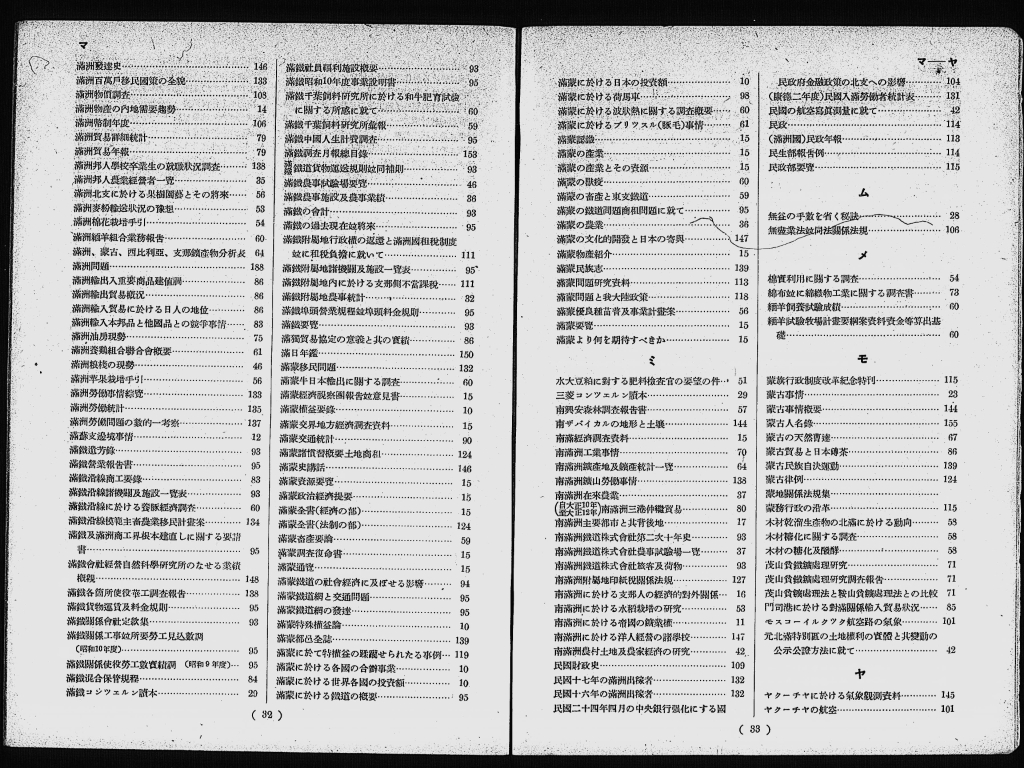 マ
滿洲發達史 146
滿洲百萬戶移民國策の全貌 133
滿洲物價調査 108
滿洲物產の內地需要趨勢 14
滿洲幣制年度 106
滿洲貿易詳細統計 79
滿洲貿易年報 79
滿洲邦人學校卒業生の就職狀況調査 138
滿洲邦人農業經營者一覽 35
滿洲北支に於ける果樹園藝とその將來 56
滿洲麥粉輸送狀況の豫想 53
滿洲棉花栽培手引 54
滿洲緬羊組合業務報告 60
滿洲、蒙古、西比利亞、支那鑛產物分析表 64
滿洲問題 188
滿洲輸出入重要商品建値調 86
滿洲輸出貿易概況 86
滿洲輸入貿易に於ける日人の地位 86
滿洲輸入本邦品と他國品との競爭事情 83
滿洲油房現勢 75
滿洲養鷄組合聯合會概要 61
滿洲粮棧の現勢 46
滿洲苹果栽培手引 56
滿洲勞働事情綜覽 133
滿洲勞働統計 135
滿洲勞働問題の數的一考察 137
滿蘇支邊境事情 12
滿鐵遺芳錄 93
滿鐵營業報告書 95
滿鐵沿線商工要錄 83
滿鐵沿線諸機關及施設一覽表 93
滿鐵沿線に於ける養豚經濟調査 60
滿鐵沿線模範主畜農業移民計畫案 134
滿鐵及滿洲商工界根本建直しに關する要請
書 95
滿鐵會社經營自然科學研究所のなせる業績
概觀 148
滿鐵各箇所使役華工調査報告 138
滿鐵貨物運賃及料金規則 95
滿鐵關係會社定款集 93
滿鐵關係工事竝所要勞工見込數調
(昭和10年度) 95
滿鐵關係使役勞工數實績調 (昭和9年度) 95
滿鐵混合保管規程 84
滿鐵コンツェルン讀本 29
滿鐵社員福利施設概要 93
滿鐵昭和10年度事業說明書 95
滿鐵千葉飼料硏究所に於ける和牛肥育試驗
に關する所感に就て 60
滿鐵千葉飼料硏究所彙報 59
滿鐵中國人生計費調査 95
滿鐵調査月報總目錄 153
滿鐵鐵道貨物運送規則竝同補則 93
滿鐵農事試驗場要覽 46
滿鐵農事施設及農事業績 36
滿鐵の會計 93
滿鐵の過去現在竝將來 95
滿鐵附屬地行政權の返還と滿洲國租稅制度
竝に租稅負擔に就いて 111
滿鐵附屬地諸機關及施設一覽表 95
滿鐵附屬地內に於ける支那側不當課稅 111
滿鐵附屬地農事統計 32
滿鐵埠頭營業規程竝埠頭料金規則 95
滿鐵要覽 93
滿獨貿易協定の意義と其の實績 86
滿日年鑑 150
滿蒙移民問題 132
滿蒙牛日本輸出に關する調査 60
滿蒙經濟視察團報告竝意見書 15
滿蒙權益要錄 10
滿蒙交界地方經濟調査資料 15
滿蒙交通統計 90
滿蒙諸慣習概要土地商租 124
滿蒙史講話 146
滿蒙資源要覽 15
滿蒙政治經濟提要 15
滿蒙全書(經濟の部) 15
滿蒙全書(法制の部) 124
滿蒙畜產要論 59
滿蒙調査復命書 15
滿蒙通覽 15
滿蒙鐵道の社會經濟に及ぼせる影響 94
滿蒙鐵道網と交通問題 95
滿蒙鐵道網の發達 95
滿蒙特殊權益論 10
滿蒙都邑全誌 139
滿蒙に於て特權益の蹂躪せられたる事例 119
滿蒙に於ける各國の合辦事業 10
滿蒙に於ける世界各國の投資額 10
滿蒙に於ける鐵道の概要 95
( 32 )
マ — ヤ
滿蒙に於ける日本の投資額 10
滿蒙に於ける荷馬車 98
滿蒙に於ける波狀熱に關する調査槪要 60
滿蒙に於けるブリツスル(豚毛)事情 61
滿蒙認識 15
滿蒙の產業 15
滿蒙の產業とその資源 15
滿蒙の獸疫 60
滿蒙の畜產と東支鐵道 59
滿蒙の鐵道問題商租問題に就て 95
滿蒙の農業 36
滿蒙の文化的開發と日本の寄與 147
滿蒙物產紹介 15
滿蒙民族志 139
滿蒙問題硏究資料 113
滿蒙問題と我大陸政策 118
滿蒙優良種苗普及事業計畫案 56
滿蒙要覽 15
滿蒙より何を期待すべきか 15
ミ
水大豆粕に對する肥料檢査官の要望の件 51
三菱コンツェルン讀本 29
南興安森林調査報告書 57
南ザバイカルの地形と土壤 144
南滿經濟調査資料 15
南滿洲工業事情 70
南滿洲鑛產地及鑛產統計一覽 64
南滿洲鑛山勞働事情 138
南滿洲在來農業 37
(自大正10年至大正12年)南滿洲三港仲繼貿易 80
南滿洲主要都市と其背後地 17
南滿洲鐵道株式會社第二次十年史 93
南滿洲鐵道株式會社農事試驗場一覽 37
南滿洲鐵道株式會社旅客及荷物 93
南滿洲附屬地印紙稅關係法規 127
南滿洲に於ける支那人の經濟的對外關係 16
南滿洲に於ける水稻栽培の硏究 53
南滿洲に於ける帝國の鑛業權 11
南滿洲に於ける洋人經營の諸學校 147
南滿洲農村土地及農家經濟の硏究 42
民國財政史 109
民國十七年の滿洲出稼者 132
民國十六年の滿洲出稼者 132
民國二十四年四月の中央銀行强化にする國
民政府金融政策の北支への影響 104
(康德二年度)民國入滿勞働者統計表 131
民國の航空寫眞測量に就て 42
民政 114
(滿洲國)民政年報 113
民生部報告例 114
民政部要覽 115
ム
無盆の手數を省く秘訣 28
無盡業法竝同法關係法規 106
メ
棉實利用に關する調査 54
棉布竝に綿織物工業に關する調査書 73
緬羊飼養試驗成績 60
緬羊試驗牧場計畫要綱案資料資金等算出基
礎 60
モ
蒙旗行政制度改革紀念特刊 115
蒙古事情 23
蒙古事情概要 144
蒙古人名錄 155
蒙古の天然曹達 67
蒙古貿易と日本磚茶 86
蒙古民族自決運動 139
蒙古律例 124
蒙地關係法規集
蒙務行政の沿革 115
木材乾溜生產物の北滿に於ける動向 58
木材糖化に關する調査 58
木材の糖化及醱酵 58
茂山貧鐵鑛處理硏究 71
茂山貧鐵鑛處理硏究調査報告 71
茂山貧鑛處理法と鞍山貧鑛處理法との比較 71
門司港に於ける對滿關係輸入貿易狀況 85
モスコーイルクツク航空路の氣象 101
元北滿特別區の土地權利の實體と其變動の
公示公證方法に就て 42
ヤ
ヤクーチヤに於ける氣象觀測資料 145
ヤクーチヤの航空 101
( 33 )